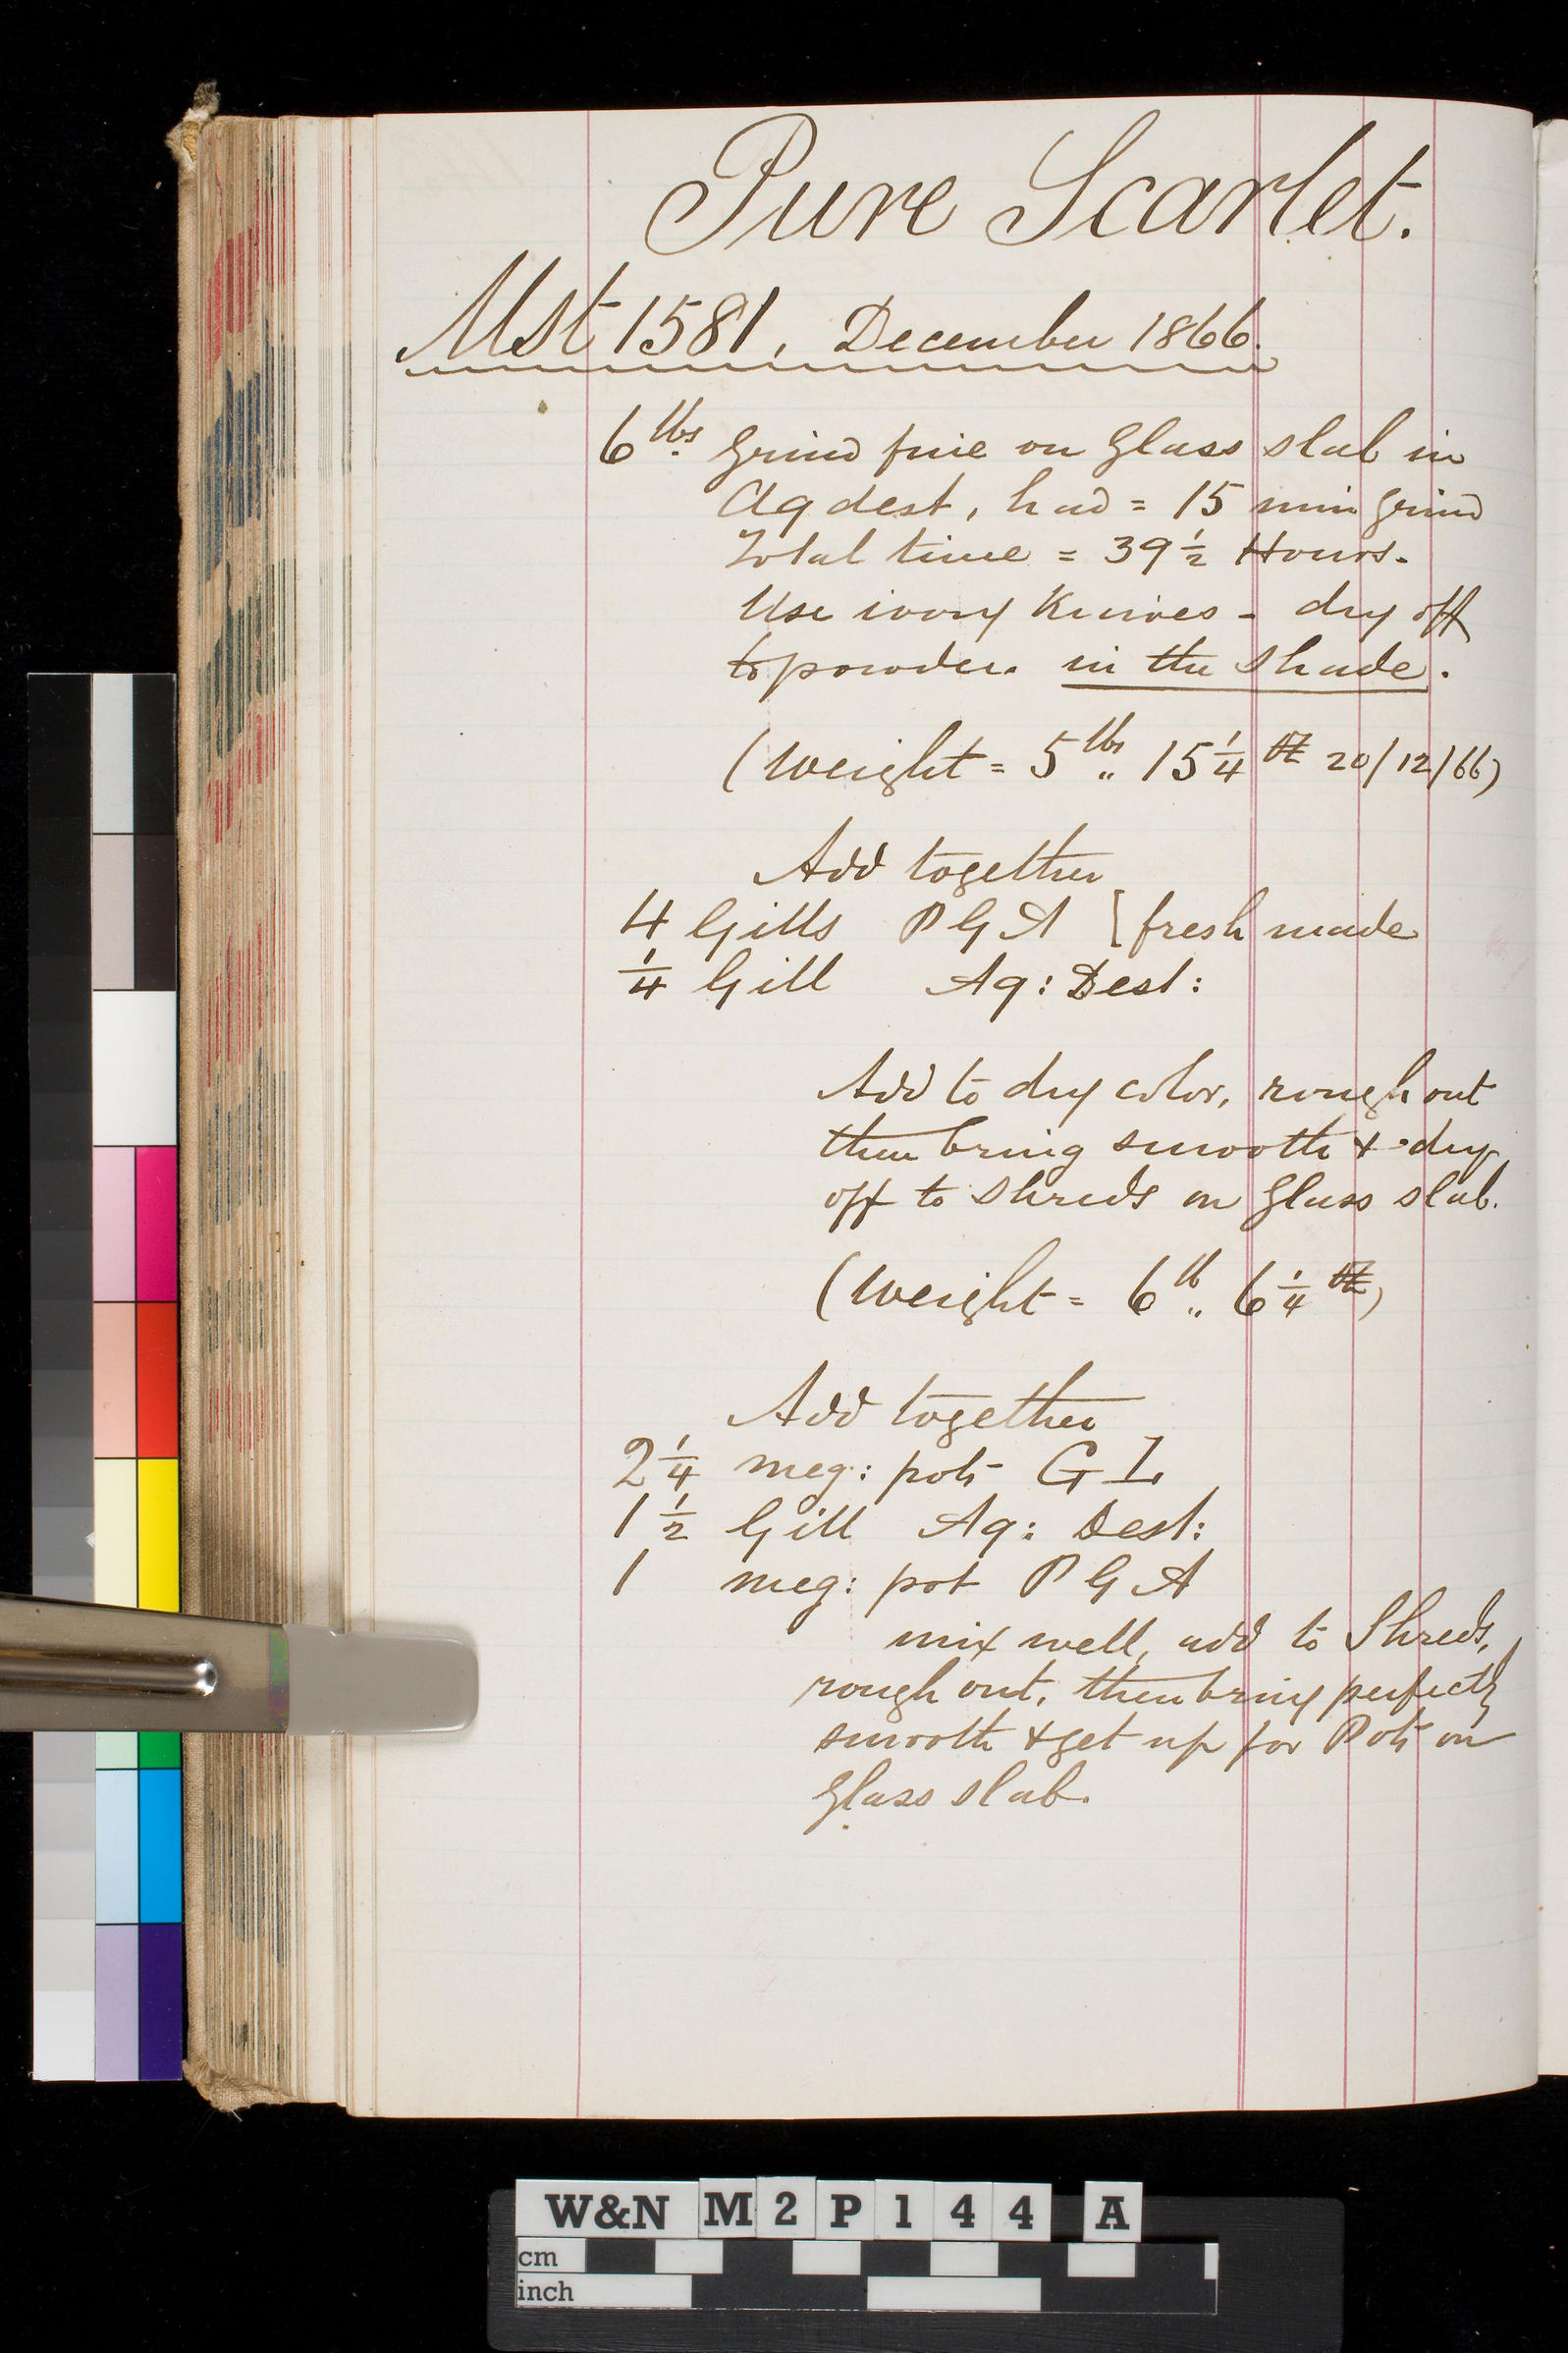 Pure Scarlet.
Mst 1581, December 1866.
6 lbs. Grind fine on Glass slab in
Aq dest, had = 15 min grind
Total time = 39 1/2 Hours.
Use ivory Knives - dry off
to powder. in the shade.
(Weight = 5 lbs „ 15 1/4 oz 20/12/66)
Add together
4 Gills P G A } fresh made
1/4 Gill Aq: Dest:
Add to dry color, rough out
then bring smooth & dry
off to shreds on Glass slab.
(Weight = 6 lb „ 6 1/4 oz)
Add together
2 1/4 meg: pots G L
1 1/2 Gill Aq: Dest:
1 meg: pot P G A
mix well, add to Shreds,
rough out, then bring perfectly
smooth & get up for Pots on
Glass slab.
W&N M2P144 A
cm
inch